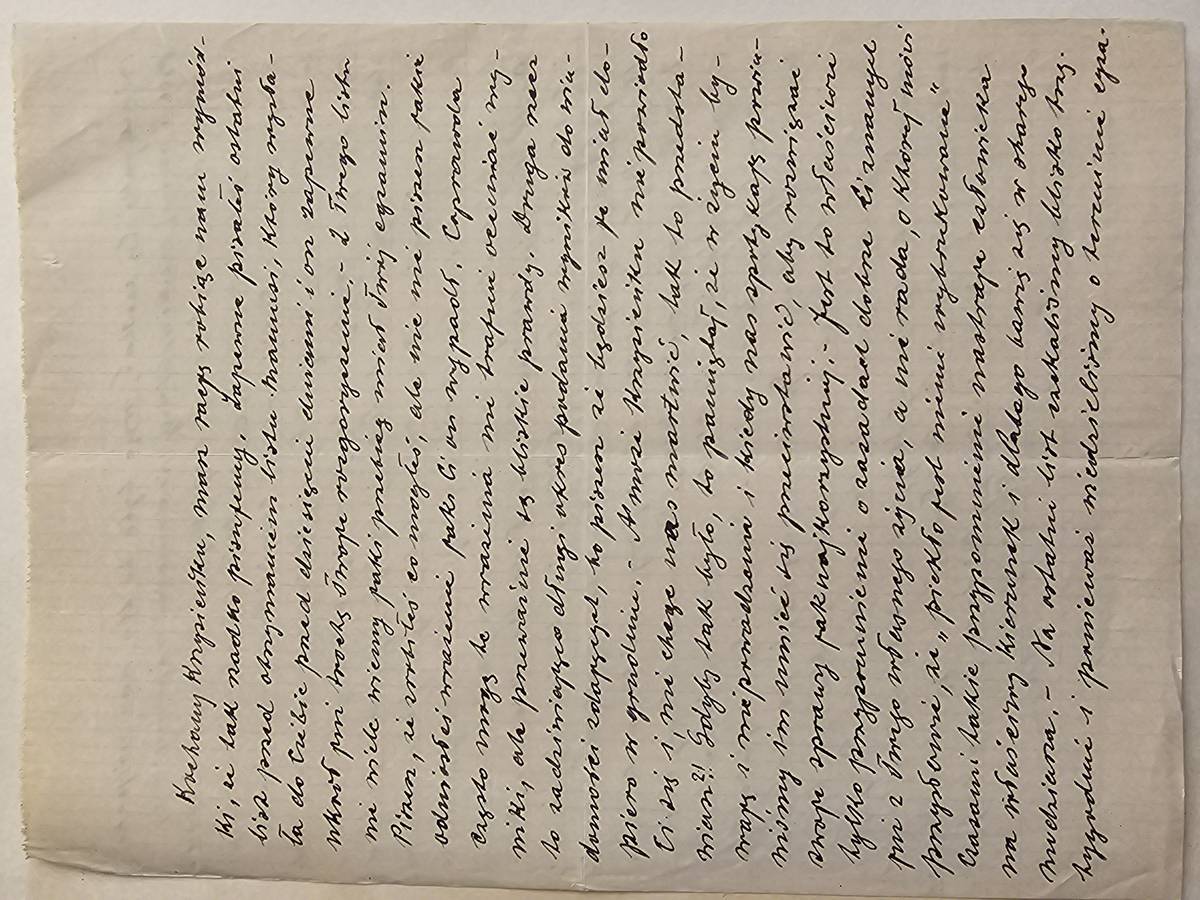 Kochany Krzysieńku, masz rację robiąc nam wymów-
ki, że tak rzadko piszemy. Zapewne pisałeś ostatni
list przed otrzymaniem listu Mamusi, który wysła-
ła do Ciebie przed dziesięciu dniami i on zapewne
ukrócił Ci trochę Twoje rozgoryczenie. - Z Twego listu
nie wiele wiemy jaki przebieg miał Twój egzamin.
Piszesz, że zrobiłeś co mogłeś, ale nie piszesz jakie
odniosłeś wrażenie jako Ci on wypadł. Coprawda
często mogą te wrażenia nie trafnie oceniać wy-
niki, ale przeważnie są bliskie prawdy. Druga rzecz
to zadziwiająco długi okres podania wyników do wia-
domości zdających, bo piszesz że będziesz je miał do-
piero w grudniu. - A może Krzysieńku nie powiodło
Ci się i nie chcesz nas martwić, tak to przedsta-
wiasz?! Gdyby tak było, to pamiętaj, że w życiu by-
wają i niepowodzenia i kiedy nas spotykają powin-
niśmy im umieć się przeciwstawić, aby rozwiązać
swoje sprawy jaknajkorzystniej. - Jest to właściwie
tylko przypomnienie o zasadach dobrze Ci znanych
już z Twego własnego życia, a nie rada, o której mówi
przysłowie, że „piekło jest nimi wybrukowane"
Czasami takie przypomnienie nastraja człowieka
na właściwy kierunek i dlatego bawię się w starego
nudziarza. - Na ostatni list czekaliśmy blisko trzy
tygodnie i ponieważ wiedzieliśmy o terminie egza-